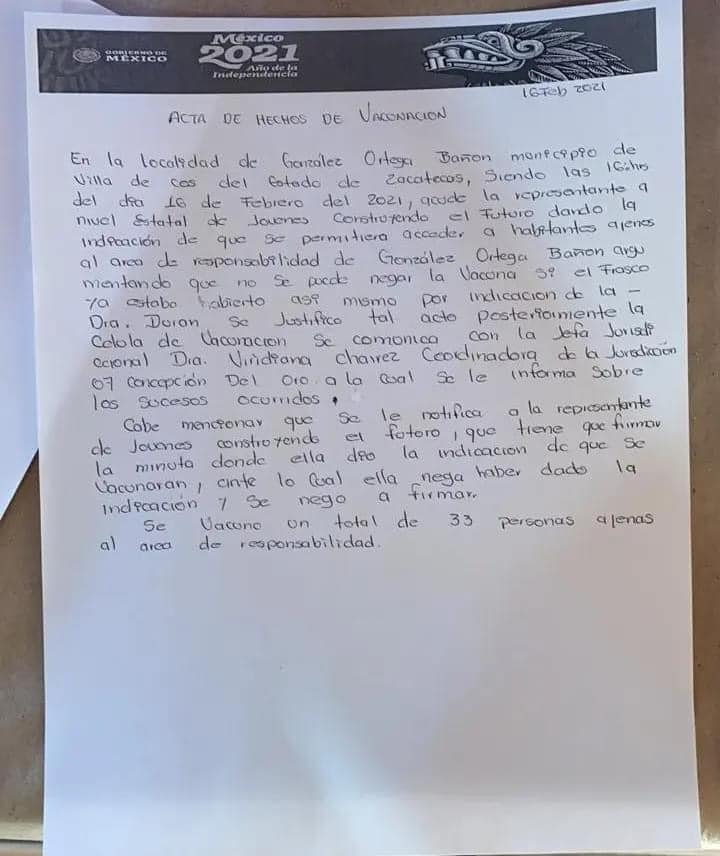 GOBIERNO DE
MÉXICO
México
2021
Año de la
Independencia
16 Feb 2021
ACTA DE HECHOS DE VACUNACION
En la localidad de González Ortega Bañon municipio de
Villa de cos del Estado de Zacatecas, Siendo las 16:hrs
del dia 16 de Febrero del 2021, acude la representante a
nivel Estatal de Jovenes Construyendo el Futuro dando la
indicación de que se permitiera acceder a habitantes ajenos
al area de responsabilidad de González Ortega Bañon argu
mentando que no se puede negar la Vacuna si el Frasco
ya estaba abierto asi mismo por indicacion de la -
Dra. Duran se Justifico tal acto posteriormente la
Celula de Vacunacion se comunica con la Jefa Jurisdi
ccional Dra. Viridiana Chavez Coordinadora de la Jurisdiccion
07 Concepción Del Oro. a la Cual se le informa Sobre
los Sucesos ocurridos.
Cabe mencionar que se le notifica a la representante
de Jovenes construyendo el futuro, que tiene que firmar
la minuta donde ella dio la indicacion de que se
Vacunaran, ante lo Cual ella nega haber dado la
indicación y se nego a firmar.
Se Vacuno un total de 33 personas ajenas
al area de responsabilidad.